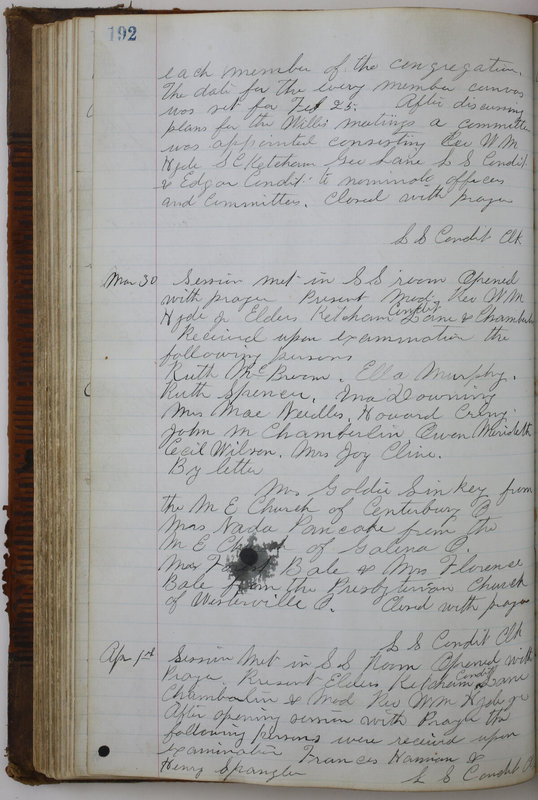 192
each member of the congregation.
The date for the every member canvas
was set for Feb 25. After discussing
plans for the Willis meetings a committee
was appointed consisting Rev W M
Hyde S E Ketcham Geo Lane L S Condit
& Edgar Condit to nominate officers
and Committees. Closed with prayer
L S Condit Clk
Mar 30 Session met in S S room Opened
with prayer Present Mod. Rev W M
Hyde & Elders Ketcham Condit Lane & Chamberlin
Received upon examination the
following persons
Ruth McBroom. Ella Murphy.
Ruth Spencer. Ina Downing
Mrs Mae Needles, Howard
John M Chamberlin Owen Merideth
Cecil Wilson. Mrs Joy Cline.
By letter
Mrs Goldie Sinkey from
the M E Church of Centerburg O
Mrs Nada Pancake from the
M E of Galena O.
Bale & Mrs Florence
Bale from the Presbyterian Church
of Westerville O. Closed with prayer
L S Condit Clk
Apr 1st Session met in S S Room Opened with
Prayer Present Elders Ketcham Condit Lane
Chamberlin & Mod Rev W M Hyde
After opening session with Prayer the
following persons were received upon
examination Frances &
Henry Spangler L S Condit